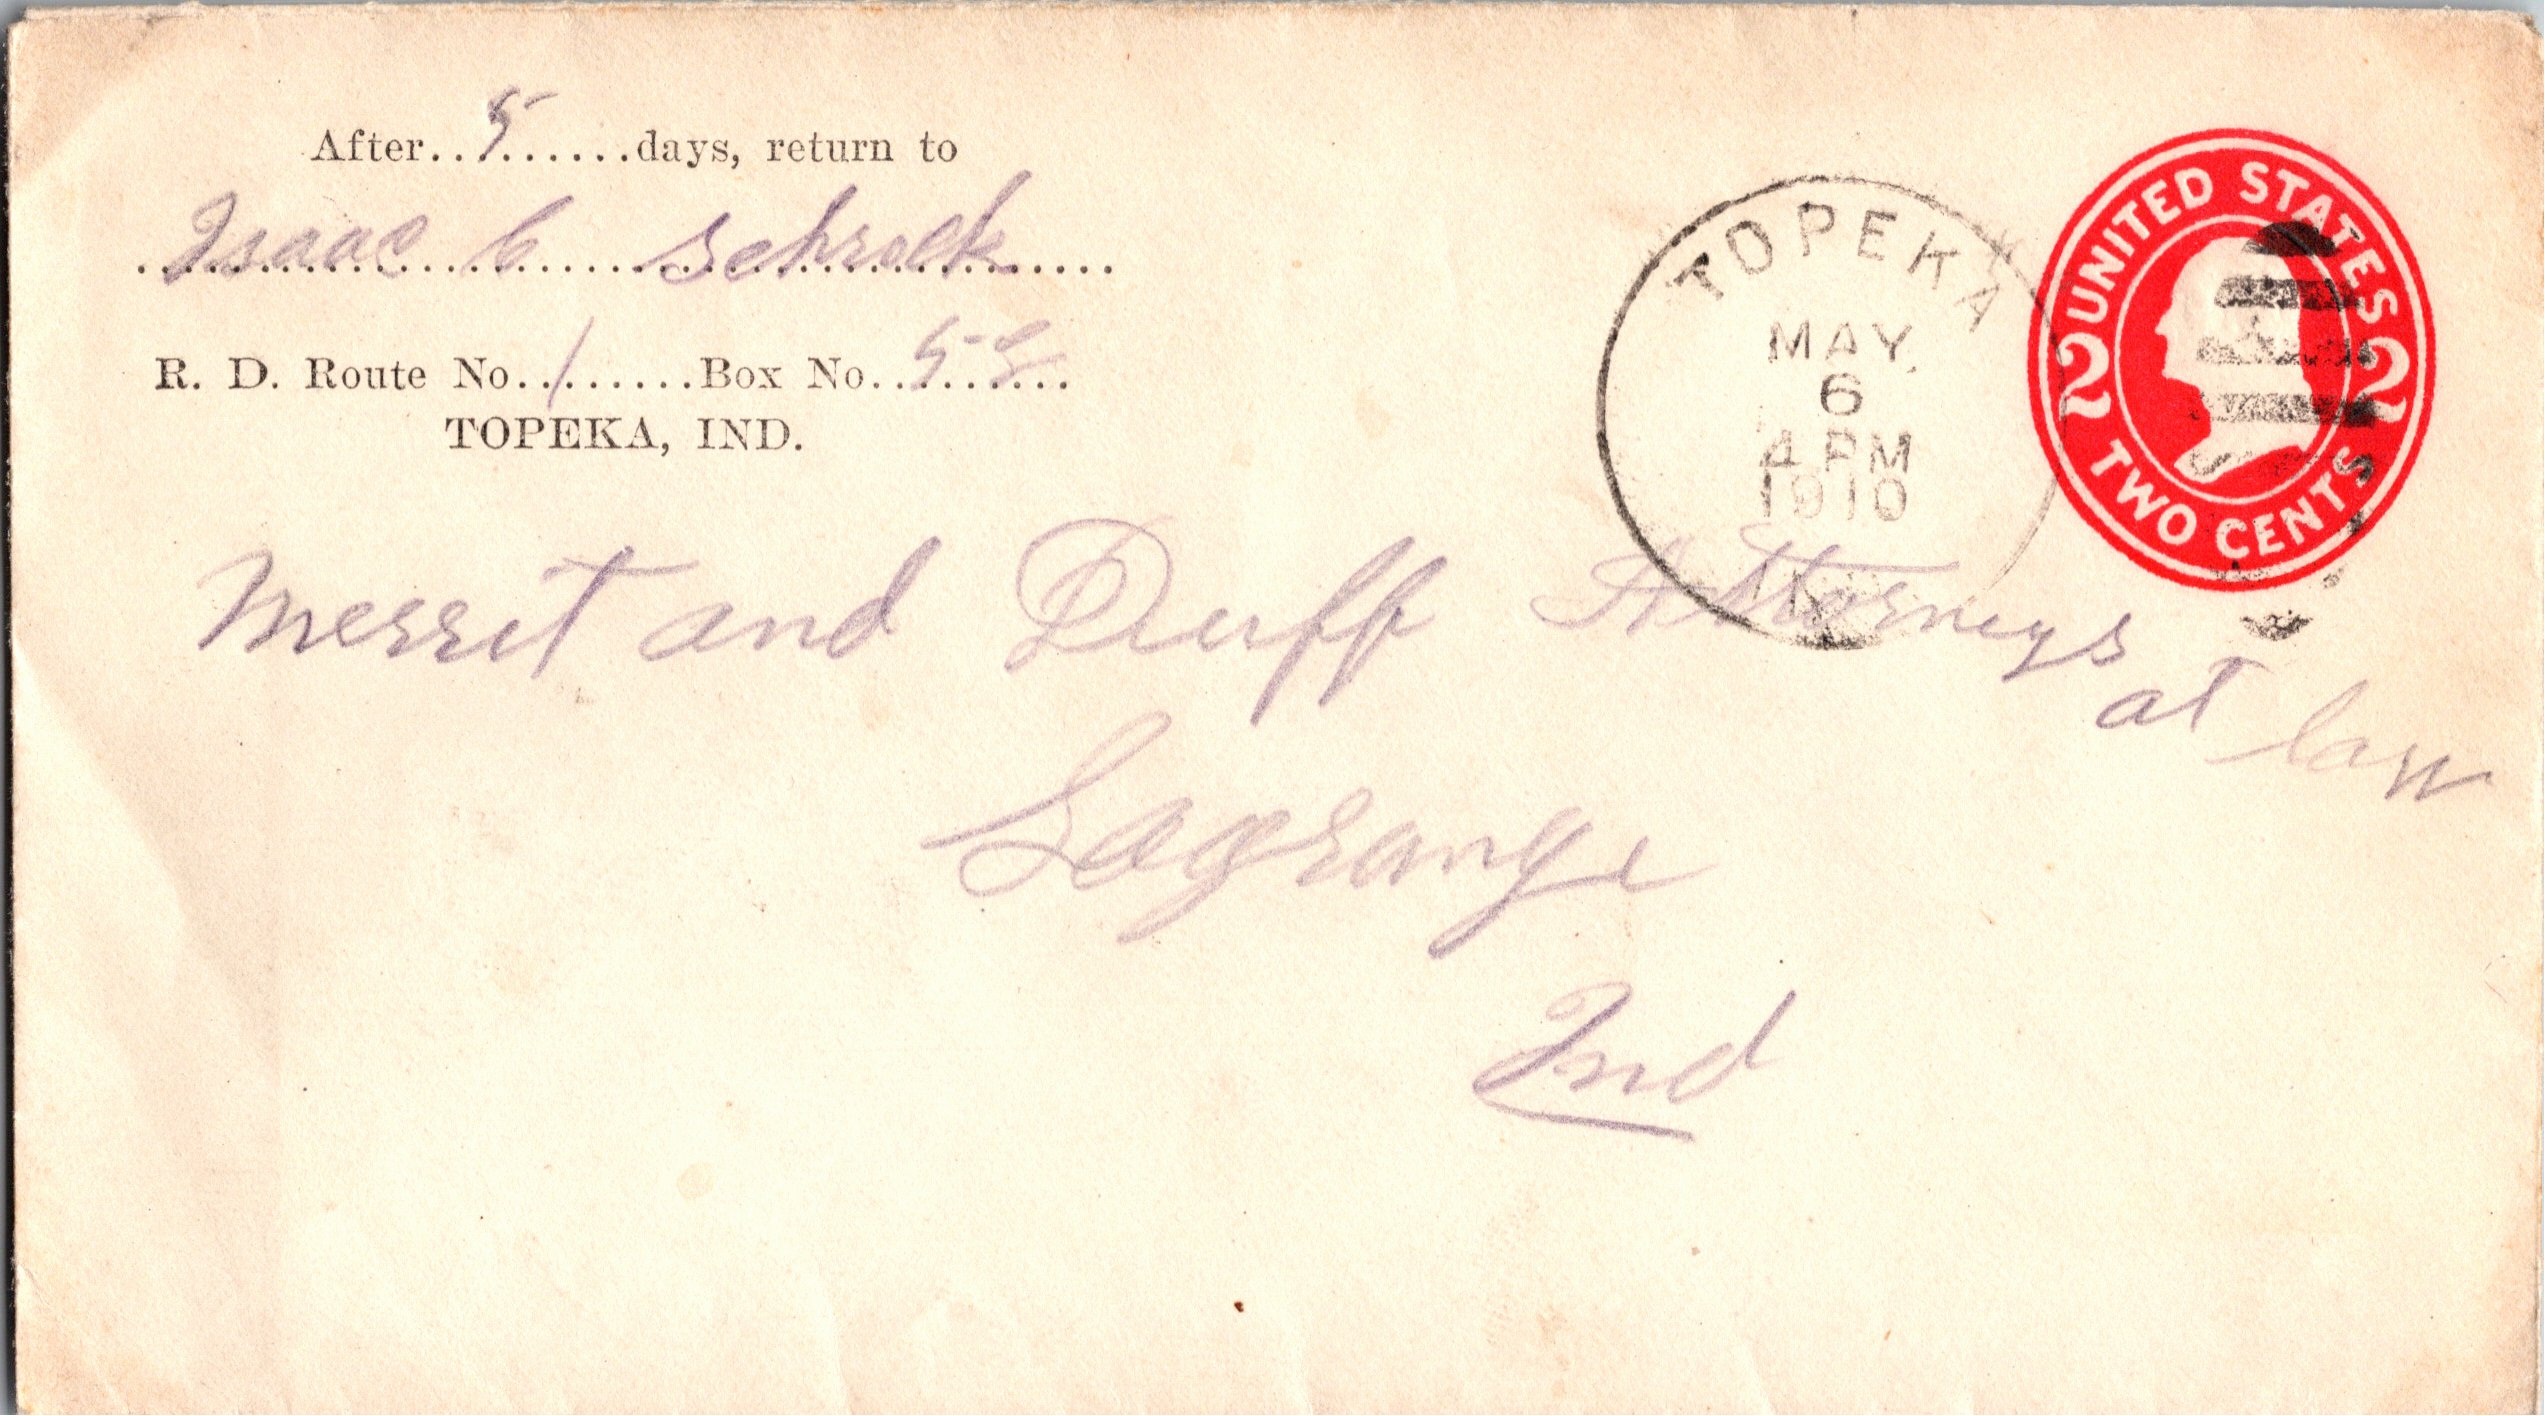 After..5......days, return to
Isaac C Schrock
R. D. Route No..1......Box No..53......
TOPEKA, IND.
TOPEKA
MAY
6
4 PM
1910
UNITED STATES
2 2
TWO CENTS
Merrit and Duff Attorneys
at law
Lagrange
Ind